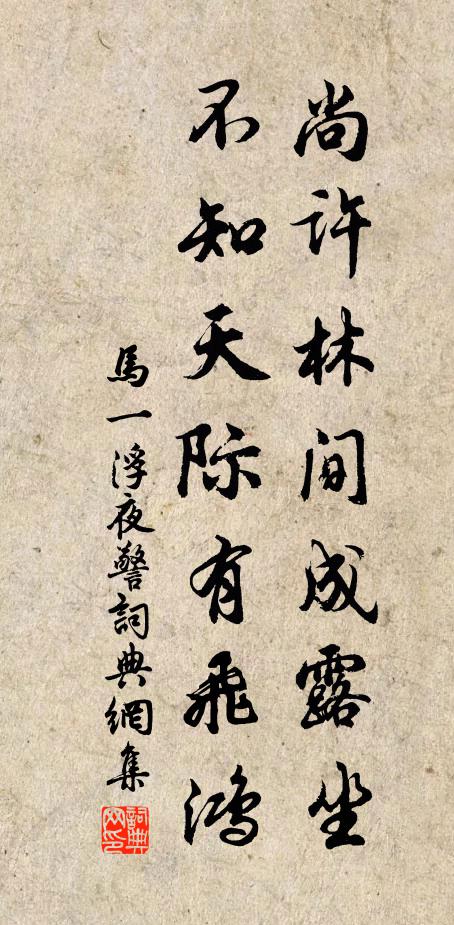 尚许林间成露坐
不知天际有飛鴻
馬一浮夜警詞典網集
詞典网印